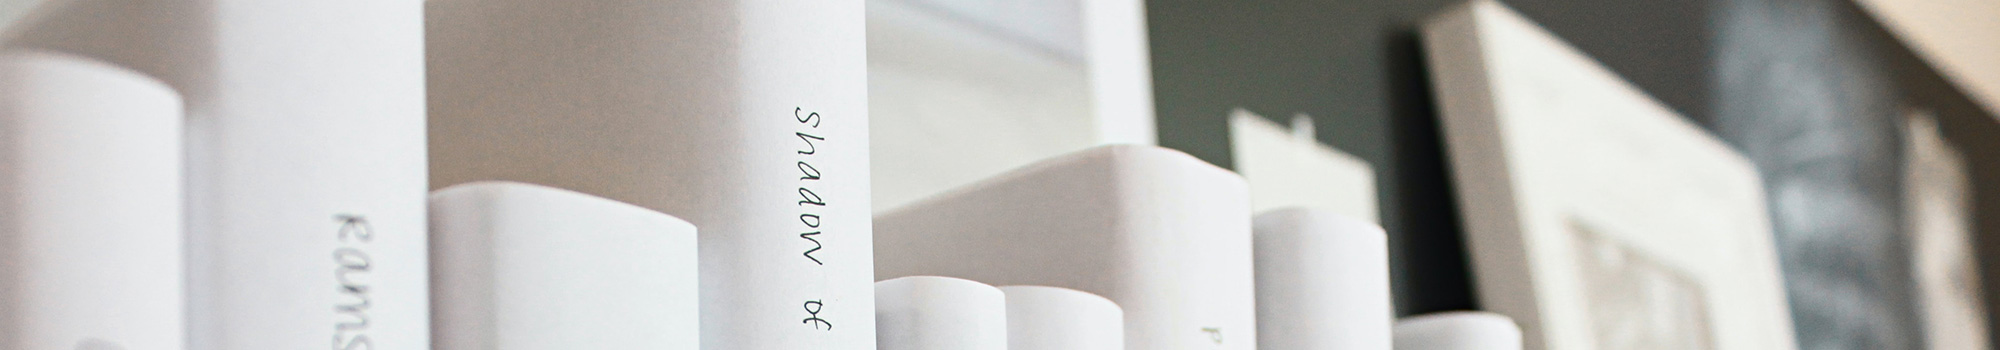 Rams
shadow of
P